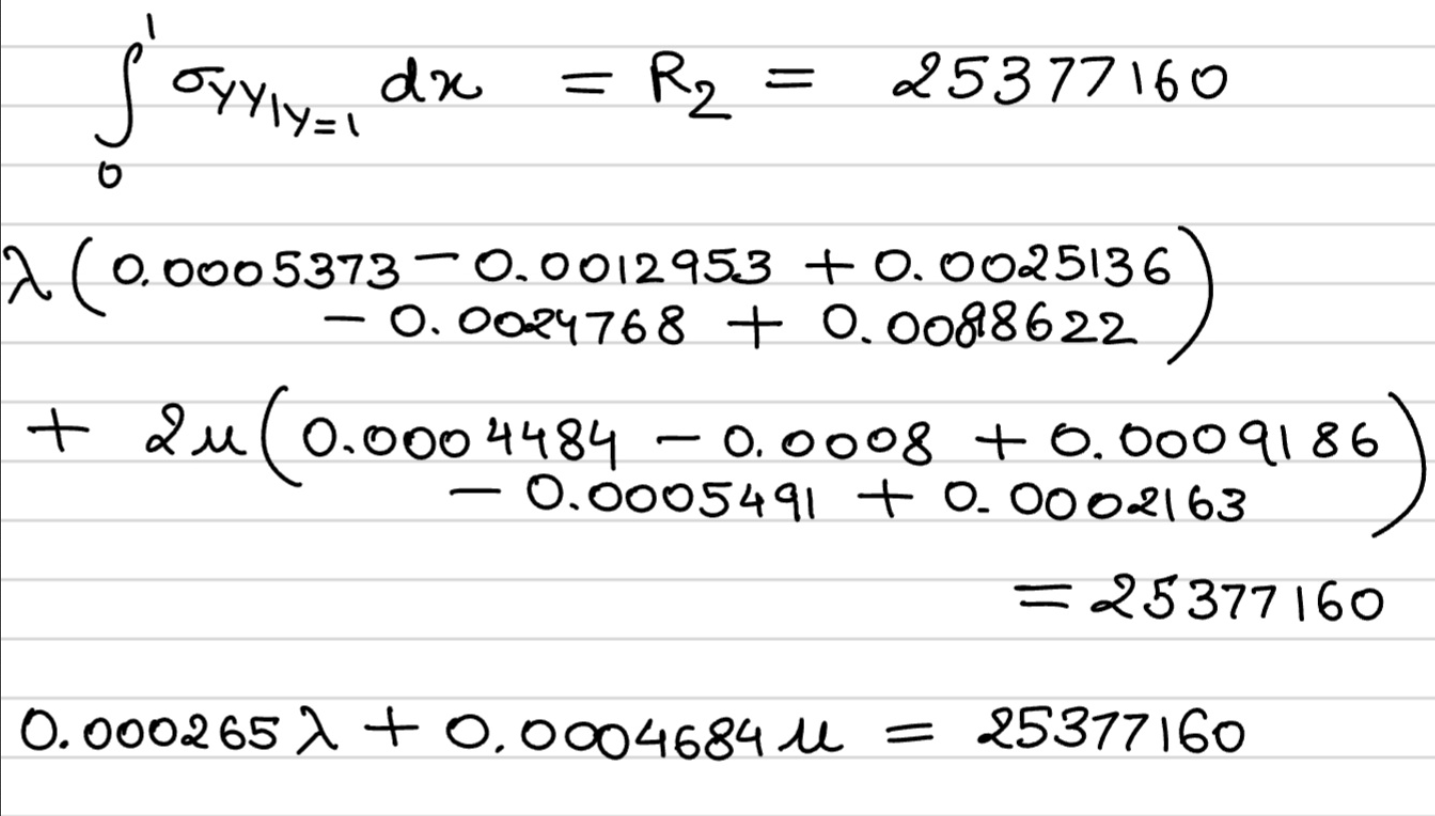 ∫₀¹ σ_{yy|y=1} dx = R₂ = 25377160
λ(0.0005373 − 0.0012953 + 0.0025136
− 0.0024768 + 0.0098622)
+ 2μ(0.0004484 − 0.0008 + 0.0009186
− 0.0005491 + 0.0002163)
= 25377160
0.000265λ + 0.0004684μ = 25377160